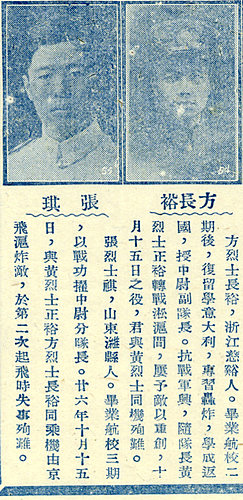 54
55
方長裕
張琪
方烈士長裕，浙江慈裕人。畢業航校二
期後，復留學意大利，專習轟炸，學成返
國，授中尉副隊長。抗戰軍興，隨隊長黃
烈士正裕轉戰淞滬間，屢予敵以重創，十
月十五日之役，君與黃烈士同機殉難。
張烈士祺，山東濰縣人。畢業航校三期
，以戰功擢中尉分隊長。廿六年十月十五
日，與黃烈士正裕方烈士長裕同乘機由京
飛滬炸敵，於第二次起飛時失事殉難。